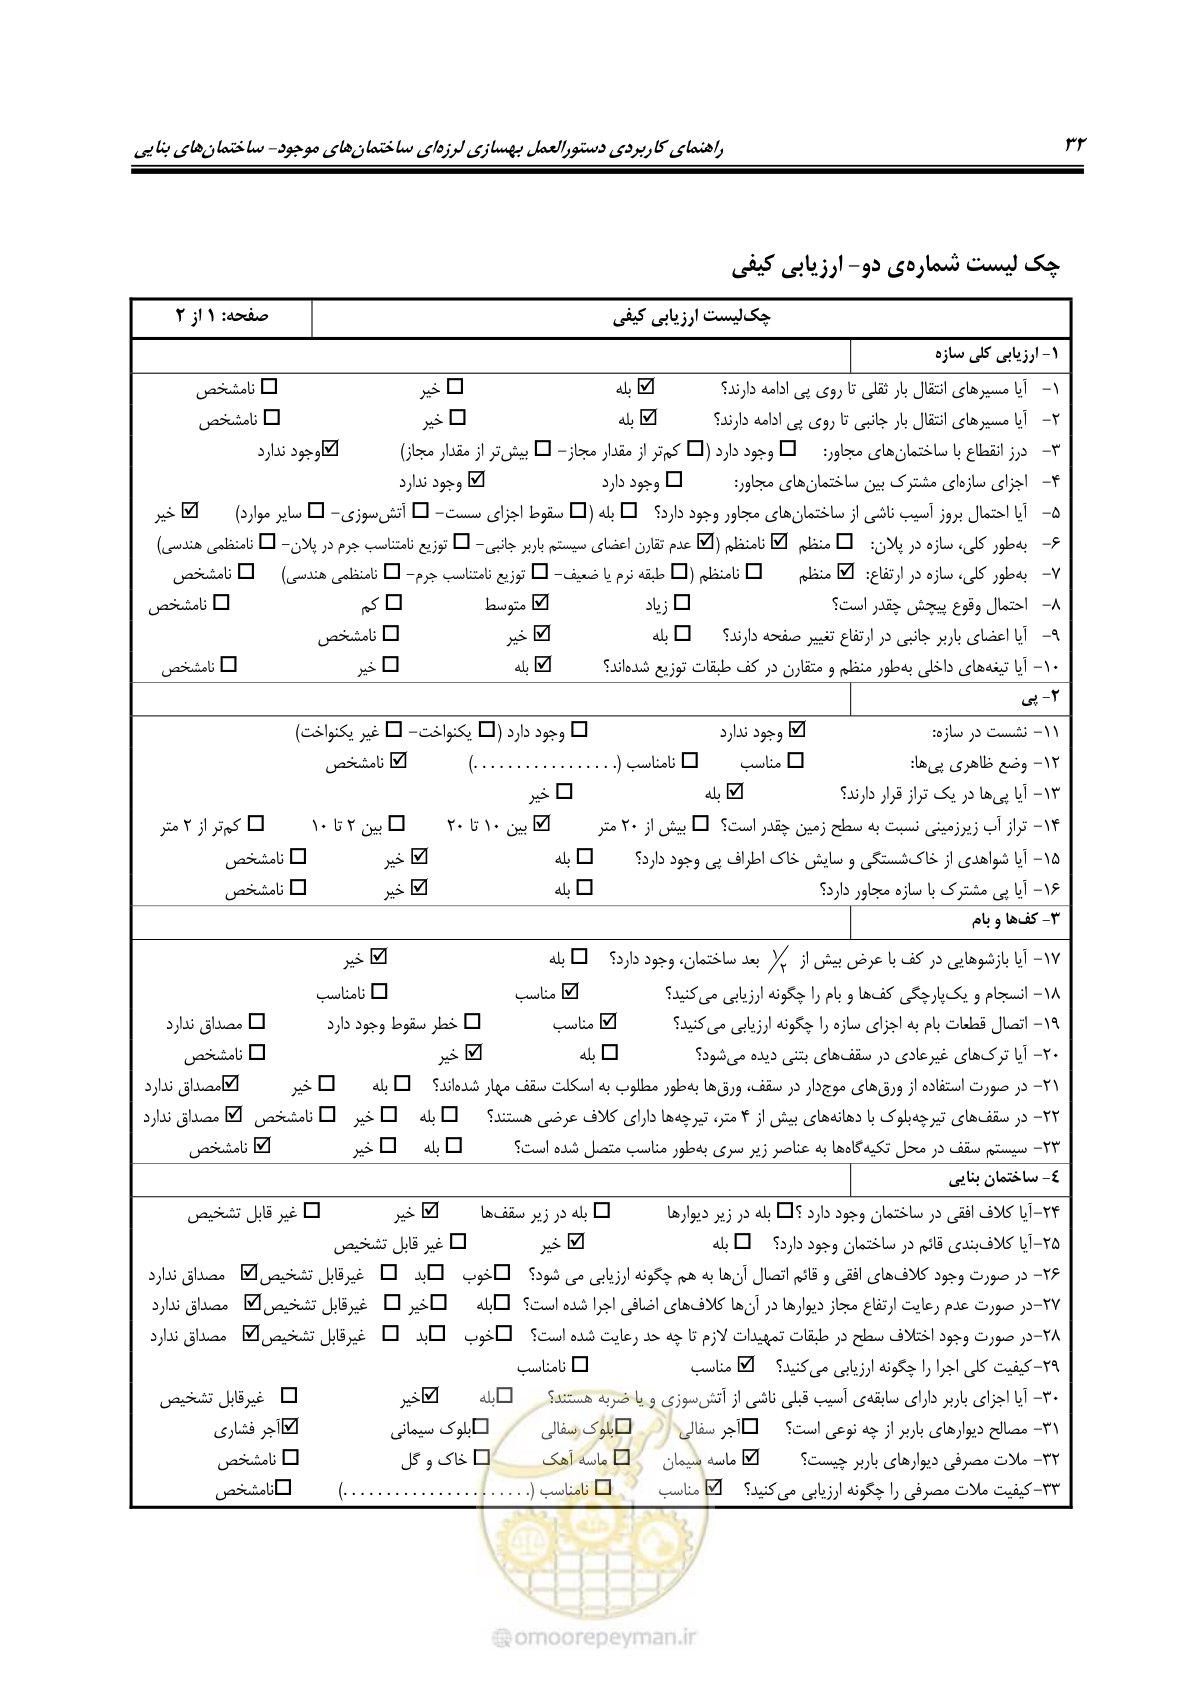 راهنمای کاربردی دستورالعمل بهسازی لرزه‌ای ساختمان‌های موجود- ساختمان‌های بنایی ۳۲
چک لیست شماره‌ی دو- ارزیابی کیفی
چک‌لیست ارزیابی کیفی صفحه: ۱ از ۲
۱- ارزیابی کلی سازه
۱- آیا مسیرهای انتقال بار ثقلی تا روی پی ادامه دارند؟ ☑ بله ☐ خیر ☐ نامشخص
۲- آیا مسیرهای انتقال بار جانبی تا روی پی ادامه دارند؟ ☑ بله ☐ خیر ☐ نامشخص
۳- درز انقطاع با ساختمان‌های مجاور: ☐ وجود دارد (☐ کم‌تر از مقدار مجاز- ☐ بیش‌تر از مقدار مجاز) ☑وجود ندارد
۴- اجزای سازه‌ای مشترک بین ساختمان‌های مجاور: ☐ وجود دارد ☑ وجود ندارد
۵- آیا احتمال بروز آسیب ناشی از ساختمان‌های مجاور وجود دارد؟ ☐ بله (☐ سقوط اجزای سست- ☐ آتش‌سوزی- ☐ سایر موارد) ☑ خیر
۶- به‌طور کلی، سازه در پلان: ☐ منظم ☑ نامنظم (☑ عدم تقارن اعضای سیستم باربر جانبی- ☐ توزیع نامتناسب جرم در پلان- ☐ نامنظمی هندسی)
۷- به‌طور کلی، سازه در ارتفاع: ☑ منظم ☐ نامنظم (☐ طبقه نرم یا ضعیف- ☐ توزیع نامتناسب جرم- ☐ نامنظمی هندسی) ☐ نامشخص
۸- احتمال وقوع پیچش چقدر است؟ ☐ زیاد ☑ متوسط ☐ کم ☐ نامشخص
۹- آیا اعضای باربر جانبی در ارتفاع تغییر صفحه دارند؟ ☐ بله ☑ خیر ☐ نامشخص
۱۰- آیا تیغه‌های داخلی به‌طور منظم و متقارن در کف طبقات توزیع شده‌اند؟ ☑ بله ☐ خیر ☐ نامشخص
۲- پی
۱۱- نشست در سازه: ☑ وجود ندارد ☐ وجود دارد (☐ یکنواخت- ☐ غیر یکنواخت)
۱۲- وضع ظاهری پی‌ها: ☐ مناسب ☐ نامناسب (.................) ☑ نامشخص
۱۳- آیا پی‌ها در یک تراز قرار دارند؟ ☑ بله ☐ خیر
۱۴- تراز آب زیرزمینی نسبت به سطح زمین چقدر است؟ ☐ بیش از ۲۰ متر ☑ بین ۱۰ تا ۲۰ ☐ بین ۲ تا ۱۰ ☐ کم‌تر از ۲ متر
۱۵- آیا شواهدی از خاک‌شستگی و سایش خاک اطراف پی وجود دارد؟ ☐ بله ☑ خیر ☐ نامشخص
۱۶- آیا پی مشترک با سازه مجاور دارد؟ ☐ بله ☑ خیر ☐ نامشخص
۳- کف‌ها و بام
۱۷- آیا بازشوهایی در کف با عرض بیش از ۱/۲ بعد ساختمان، وجود دارد؟ ☐ بله ☑ خیر
۱۸- انسجام و یک‌پارچگی کف‌ها و بام را چگونه ارزیابی می‌کنید؟ ☑ مناسب ☐ نامناسب
۱۹- اتصال قطعات بام به اجزای سازه را چگونه ارزیابی می‌کنید؟ ☑ مناسب ☐ خطر سقوط وجود دارد ☐ مصداق ندارد
۲۰- آیا ترک‌های غیرعادی در سقف‌های بتنی دیده می‌شود؟ ☐ بله ☑ خیر ☐ نامشخص
۲۱- در صورت استفاده از ورق‌های موج‌دار در سقف، ورق‌ها به‌طور مطلوب به اسکلت سقف مهار شده‌اند؟ ☐ بله ☐ خیر ☑مصداق ندارد
۲۲- در سقف‌های تیرچه‌بلوک با دهانه‌های بیش از ۴ متر، تیرچه‌ها دارای کلاف عرضی هستند؟ ☐ بله ☐ خیر ☐ نامشخص ☑ مصداق ندارد
۲۳- سیستم سقف در محل تکیه‌گاه‌ها به عناصر زیر سری به‌طور مناسب متصل شده است؟ ☐ بله ☐ خیر ☑ نامشخص
۴- ساختمان بنایی
۲۴-آیا کلاف افقی در ساختمان وجود دارد ؟☐ بله در زیر دیوارها ☐ بله در زیر سقف‌ها ☑ خیر ☐ غیر قابل تشخیص
۲۵-آیا کلاف‌بندی قائم در ساختمان وجود دارد؟ ☐ بله ☑ خیر ☐ غیر قابل تشخیص
۲۶- در صورت وجود کلاف‌های افقی و قائم اتصال آن‌ها به هم چگونه ارزیابی می شود؟ ☐خوب ☐بد ☐ غیرقابل تشخیص☑ مصداق ندارد
۲۷-در صورت عدم رعایت ارتفاع مجاز دیوارها در آن‌ها کلاف‌های اضافی اجرا شده است؟ ☐بله ☐خیر ☐ غیرقابل تشخیص☑ مصداق ندارد
۲۸-در صورت وجود اختلاف سطح در طبقات تمهیدات لازم تا چه حد رعایت شده است؟ ☐خوب ☐بد ☐ غیرقابل تشخیص☑ مصداق ندارد
۲۹-کیفیت کلی اجرا را چگونه ارزیابی می‌کنید؟ ☑ مناسب ☐ نامناسب
۳۰- آیا اجزای باربر دارای سابقه‌ی آسیب قبلی ناشی از آتش‌سوزی و یا ضربه هستند؟ ☐بله ☑خیر ☐ غیرقابل تشخیص
۳۱- مصالح دیوارهای باربر از چه نوعی است؟ ☐آجر سفالی ☐بلوک سفالی ☐بلوک سیمانی ☑آجر فشاری
۳۲- ملات مصرفی دیوارهای باربر چیست؟ ☑ ماسه سیمان ☐ ماسه آهک ☐ خاک و گل ☐ نامشخص
۳۳-کیفیت ملات مصرفی را چگونه ارزیابی می‌کنید؟ ☑ مناسب ☐ نامناسب (......................) ☐نامشخص
امور پیمان
@omoorepeyman.ir